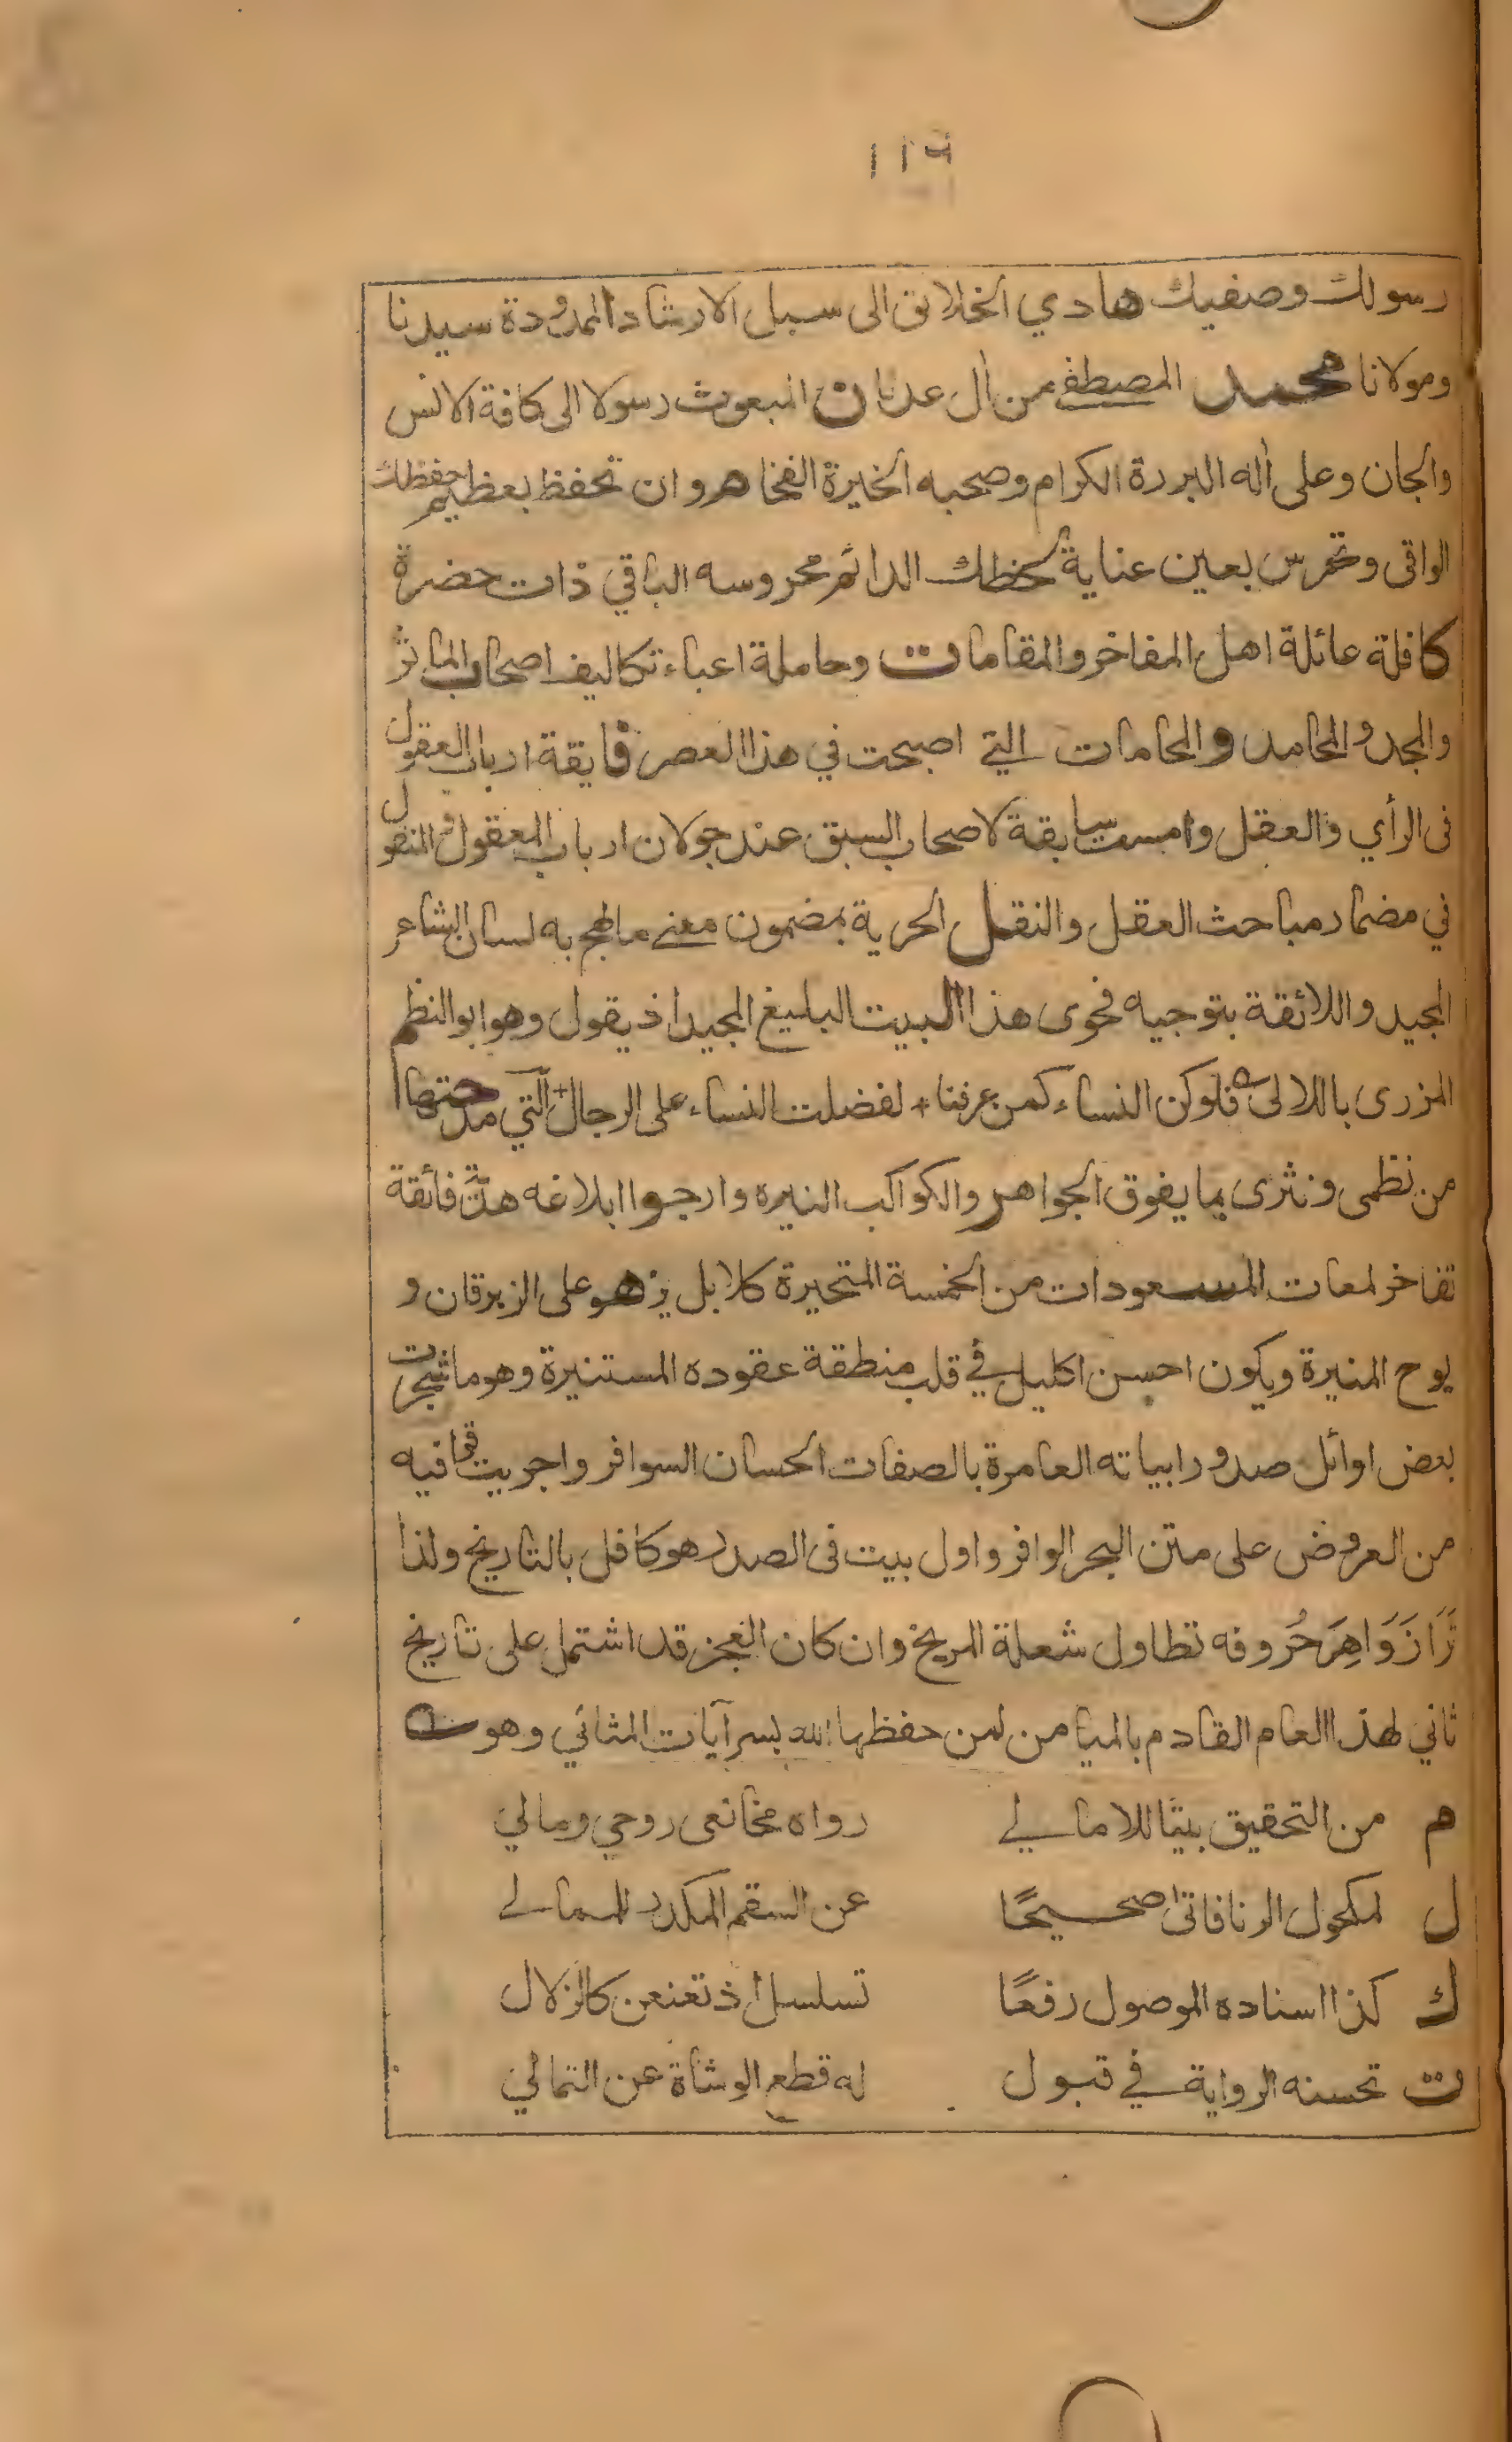 ١١٦
رسولك وصفيك هادي الخلائق الى سبل الارشاد الممدودة سيدنا
ومولانا محمد المصطفى من آل عدنان المبعوث رسولا الى كافة الانس
والجان وعلى آله البررة الكرام وصحبه الخيرة الفخاهر وان تحفظ بعظيم حفظك
الواقى وتحرس بعين عناية لحظك الدائم محروسه الباقي ذات حضرة
كافلة عائلة اهل المفاخر والمقامات وحاملة اعباء تكاليف اصحاب الماثر
والمجد والمحامد والمحامات التي اصبحت في هذا العصر فايقة ارباب العقول
فى الرأي والعقل وامست سابقة لاصحاب السبق عند جولان ارباب المعقول والمنقول
في مضمار مباحث العقل والنقل الحرية بمضمون معنى ما لهج به لسان الشاعر
المجيد واللائقة بتوجيه فحوى هذا البيت البليغ المجيد اذ يقول وهو ابو النظم
المزرى باللالئ ه فلو كن النساء كمن عرفنا + لفضلت النساء على الرجال + التي مدحتها
من نظمى ونثرى بما يفوق الجواهر والكواكب النيره وارجوا ابلاغه هدية فائقة
تفاخر لمعات المسعودات من الخمسة المتحيرة كلا بل يزهو على الزبرقان و
يوح المنيرة ويكون احسن اكليل في قلب منطقة عقوده المستنيرة وهو ما شجرت
بعض اوائل صدور ابياته العامرة بالصفات الحسان السوافر واجريت قوافيه
من العروض على متن البحر الوافر واول بيت فى الصدر هو كافل بالتاريخ ولذا
تَرَا زَوَاهِرَ حُروفه تطاول شعلة المريخ وان كان العجز قد اشتمل على تاريخ
ثاني لهذا العام القادم بالميامن لمن حفظها الله بسر آيات المثاني وهو
م من التحقيق بيتًا للامالي رواه مخانعى روحي ومالي
ل لمكحول الرنا فاتى صحيحًا عن السقم المكدر للمسالي
ك كذا اسناده الموصول رفعًا تسلسل اذ تعنعن كالزلال
ت تحسنه الرواية في قبول له قطع الوشاة عن التمالي